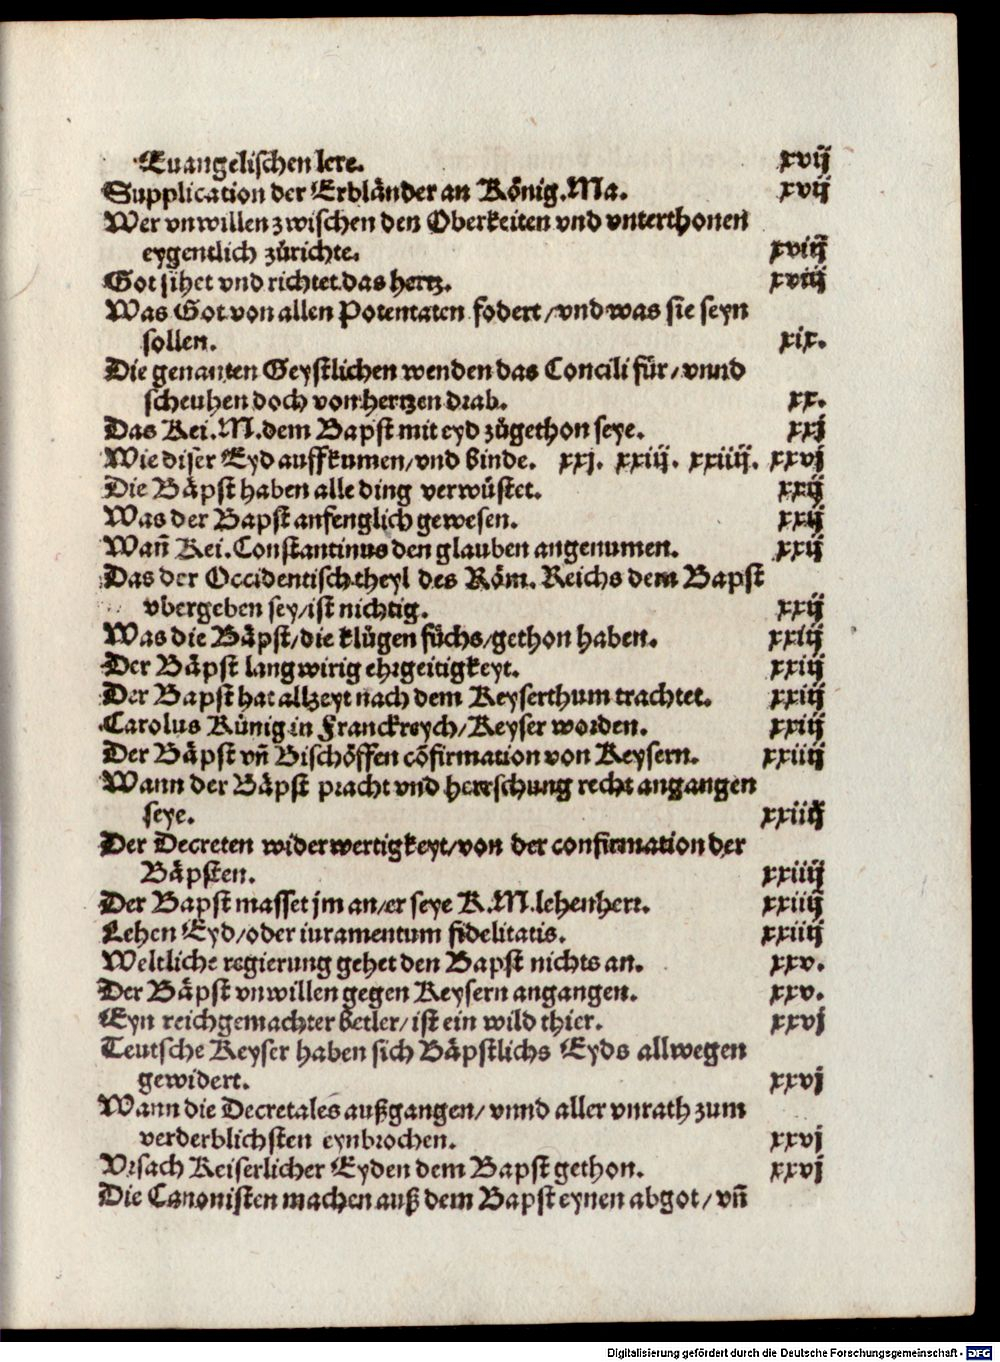 Euangelischen lere. xvij
Supplication der Erbländer an König. Ma. xvij
Wer vnwillen zwischen den Oberkeiten vnd vnterthonen
eygentlich zůrichte. xviij
Got sihet vnd richtet das hertz. xviij
Was Got von allen Potentaten fodert / vnd was sie seyn
sollen. xix.
Die genanten Geystlichen wenden das Concili für / vnnd
scheuhen doch von hertzen drab. xx.
Das Kei. M. dem Bapst mit eyd zůgethon seye. xxj
Wie diser Eyd auffkumen / vnd binde. xxj. xxiij. xxiiij. xxvj
Die Bäpst haben alle ding verwüstet. xxij
Was der Bapst anfenglich gewesen. xxij
Wañ Kei. Constantinus den glauben angenumen. xxij
Das der Occidentisch theyl des Röm. Reichs dem Bapst
vbergeben sey / ist nichtig. xxij
Was die Bäpst / die klůgen füchs / gethon haben. xxiij
Der Bäpst langwirig ehrgeitigkeyt. xxiij
Der Bapst hat allzeyt nach dem Keyserthum trachtet. xxiij
Carolus Künig in Franckreych / Keyser worden. xxiij
Der Bäpst vñ Bischöffen cõfirmation von Keysern. xxiiij
Wann der Bäpst pracht vnd herrschung recht angangen
seye. xxiiij
Der Decreten widerwertigkeyt / von der confirmation der
Bäpsten. xxiiij
Der Bapst masset jm an / er seye K. M. lehenherr. xxiiij
Lehen Eyd / oder iuramentum fidelitatis. xxiiij
Weltliche regierung gehet den Bapst nichts an. xxv.
Der Bäpst vnwillen gegen Keysern angangen. xxv.
Eyn reichgemachter betler / ist ein wild thier. xxvj
Teutsche Keyser haben sich Bäpstlichs Eyds allwegen
gewidert. xxvj
Wann die Decretales außgangen / vnnd aller vnrath zum
verderblichsten eynbrochen. xxvj
Vrsach Keiserlicher Eyden dem Bapst gethon. xxvj
Die Canonisten machen auß dem Bapst eynen abgot / vñ
Digitalisierung gefördert durch die Deutsche Forschungsgemeinschaft - DFG